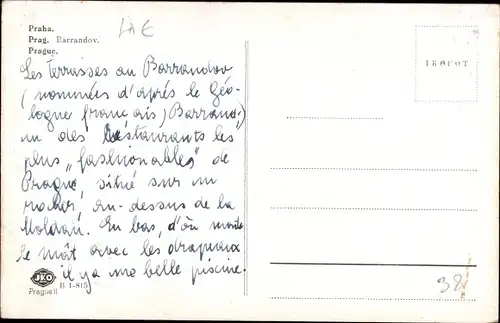 Praha.
Prag. Barrandov.
Prague.
LAE
IKOFOT
Les Terrasses au Barrandov
(nommées d'après le Géo-
logue français) Barrand,
un des Restaurants les
plus „fashionables" de
Prague, situé sur un
rocher, au-dessus de la
Moldau. En bas, d'où monte
le mât avec les drapeaux
il y a une belle piscine.
JKO
Prague II
B 1-815
38